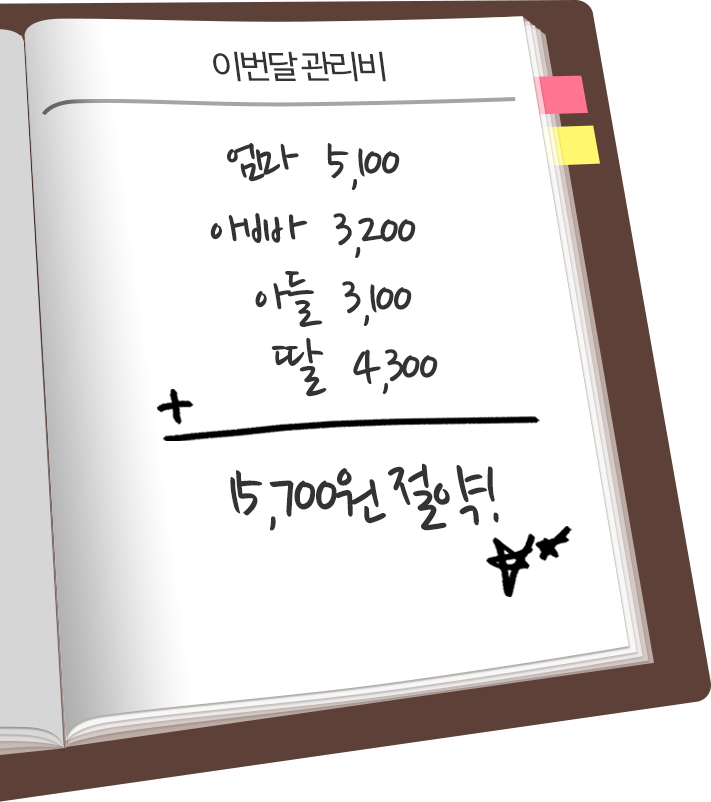 이번달 관리비
엄마 5,100
아빠 3,200
아들 3,100
딸 4,300
+
15,700원 절약!